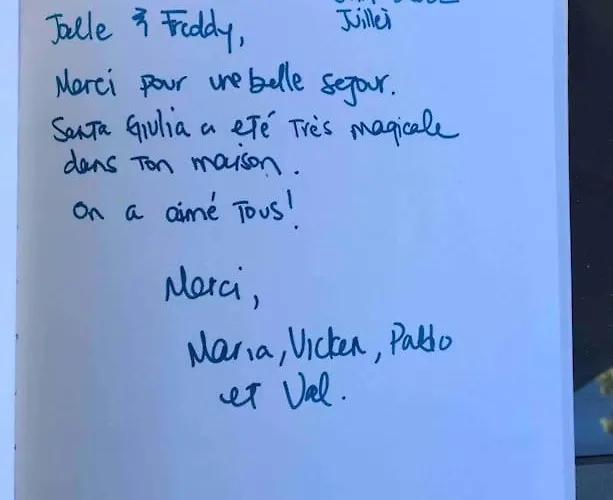 Joelle & Freddy,
Juillet
Merci pour une belle sejour.
Santa Giulia a eté Très magicale
dans Ton maison.
On a aimé Tous!
Merci,
Maria, Vicken, Pablo
et Val.